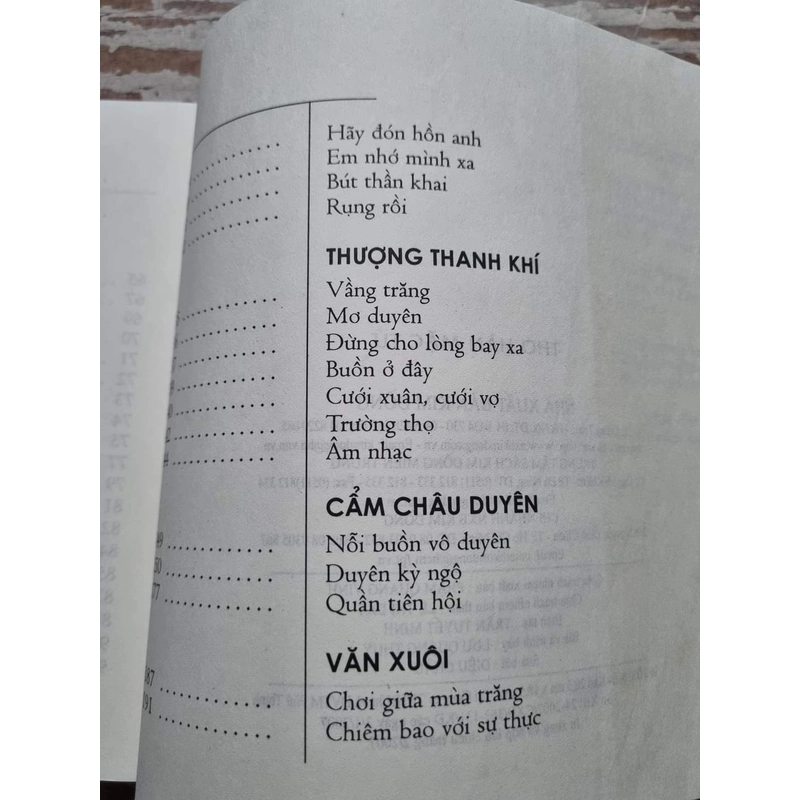 Hãy đón hồn anh
Em nhớ mình xa
Bút thần khai
Rụng rồi
THƯỢNG THANH KHÍ
Vầng trăng
Mơ duyên
Đừng cho lòng bay xa
Buồn ở đây
Cưới xuân, cưới vợ
Trường thọ
Âm nhạc
CẨM CHÂU DUYÊN
49 Nỗi buồn vô duyên
60 Duyên kỳ ngộ
77 Quần tiên hội
VĂN XUÔI
187 Chơi giữa mùa trăng
191 Chiêm bao với sự thực